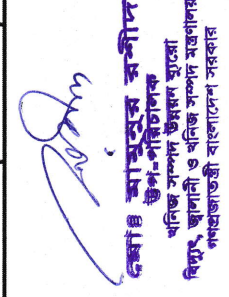 মোঃ মামুনুর রশীদ
উপ-পরিচালক
খনিজ সম্পদ উন্নয়ন ব্যুরো
বিদ্যুৎ, জ্বালানী ও খনিজ সম্পদ মন্ত্রণালয়
গণপ্রজাতন্ত্রী বাংলাদেশ সরকার